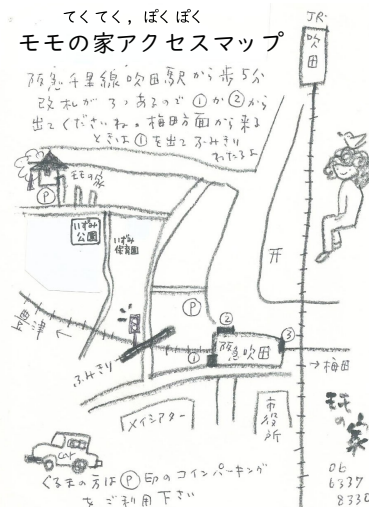 てくてく,ぽくぽく
モモの家アクセスマップ
JR
吹田
阪急千里線吹田駅から歩5分
改札が3つあるので①か②から
出てくださいね。梅田方面から来る
ときは①を出てふみきり
わたるよ
モモの家
P
いずみ
公園
いずみ
保育園
P
②
③
豊津
←
阪急吹田
①
ふみきり
→梅田
メイシアター
市役所
モモの家
06
6337
8330
くるまの方はP印のコインパーキング
をご利用下さい